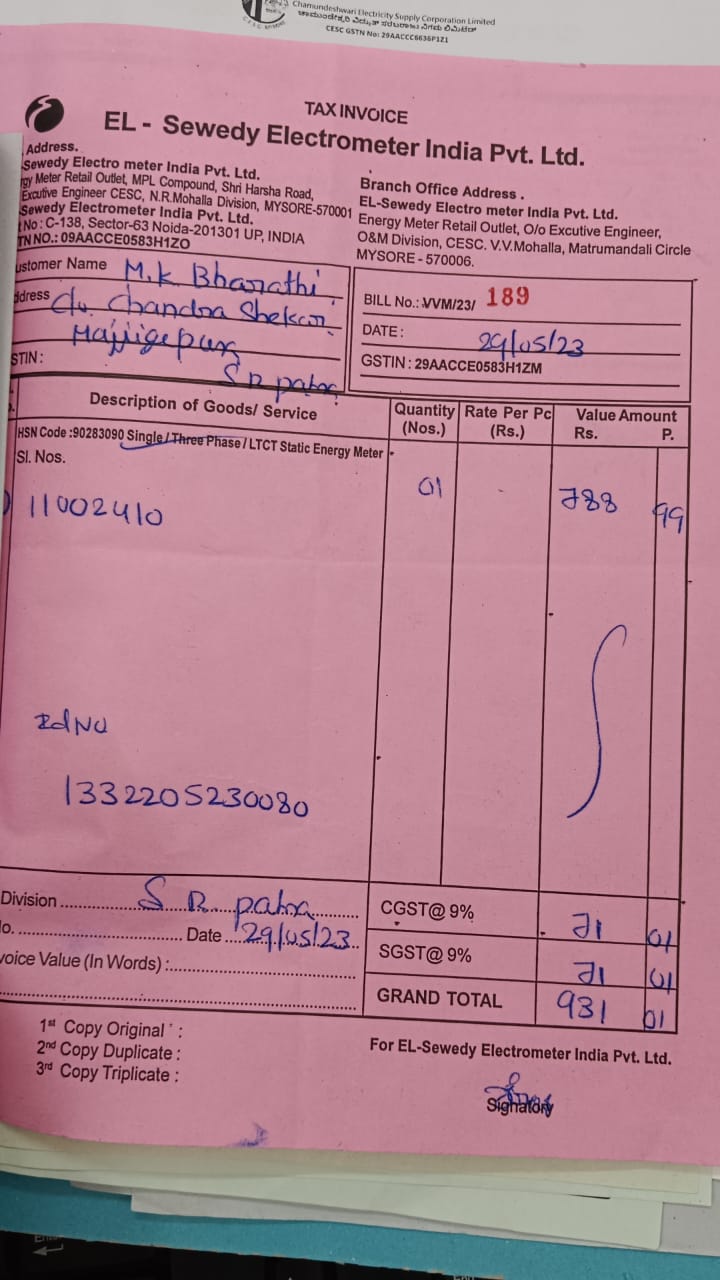 Chamundeshwari Electricity Supply Corporation Limited
ಚಾಮುಂಡೇಶ್ವರಿ ವಿದ್ಯುತ್ ಸರಬರಾಜು ನಿಗಮ ನಿಯಮಿತ
CESC GSTN No: 29AACCC6636P1Z1
TAX INVOICE
EL - Sewedy Electrometer India Pvt. Ltd.
Address.
Sewedy Electro meter India Pvt. Ltd.
gy Meter Retail Outlet, MPL Compound, Shri Harsha Road,
Excutive Engineer CESC, N.R.Mohalla Division, MYSORE-570001
Sewedy Electrometer India Pvt. Ltd.
t No : C-138, Sector-63 Noida-201301 UP, INDIA
TN NO.: 09AACCE0583H1ZO
Branch Office Address .
EL-Sewedy Electro meter India Pvt. Ltd.
Energy Meter Retail Outlet, O/o Excutive Engineer,
O&M Division, CESC. V.V.Mohalla, Matrumandali Circle
MYSORE - 570006.
ustomer Name M.K Bharathi
ddress C/o. Chandra Shekar.
STIN :
S R patna
BILL No.: VVM/23/ 189
DATE : 29/05/23
GSTIN : 29AACCE0583H1ZM
Description of Goods/ Service Quantity (Nos.) Rate Per Pc (Rs.) Value Amount Rs. P.
HSN Code :90283090 Single / Three Phase / LTCT Static Energy Meter
Sl. Nos.
11002410 01 - 788 99
Id No
1332205230080
Division S R patna
CGST@ 9% 71 01
o. Date 29/05/23
SGST@ 9% 71 01
voice Value (In Words) :
GRAND TOTAL 931 01
1st Copy Original :
2nd Copy Duplicate :
3rd Copy Triplicate :
For EL-Sewedy Electrometer India Pvt. Ltd.
Signatory